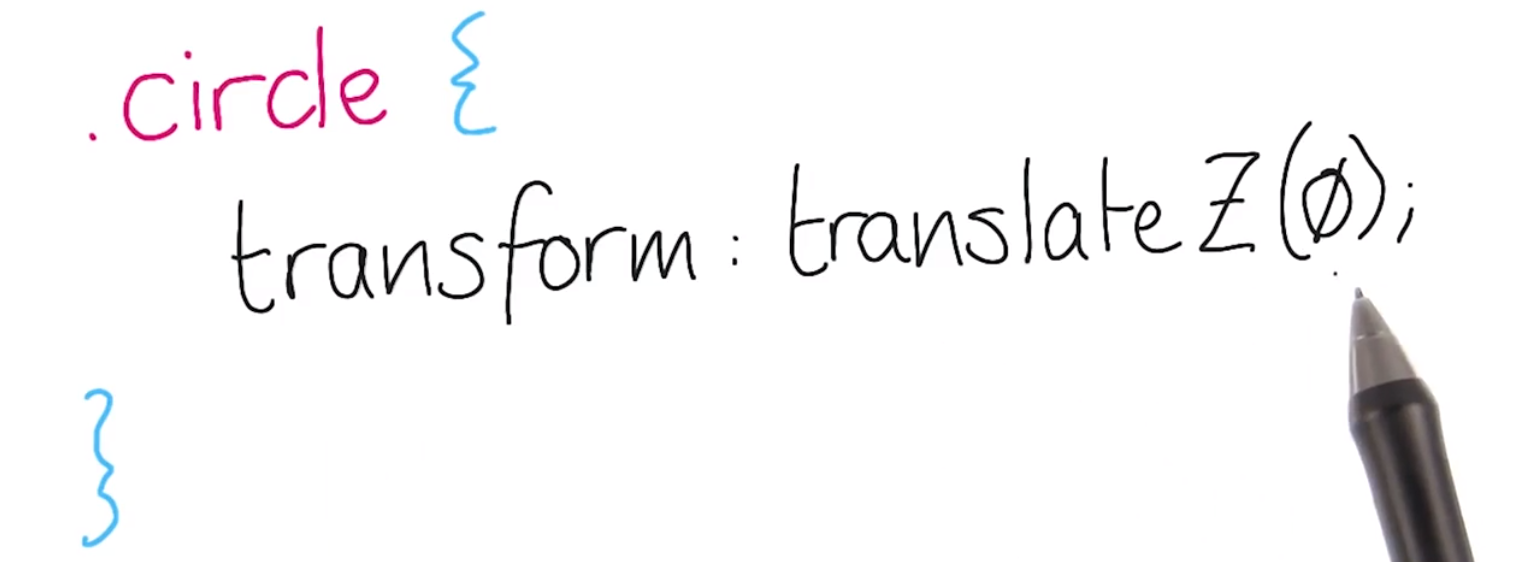 .circle {
transform: translateZ(0);
}